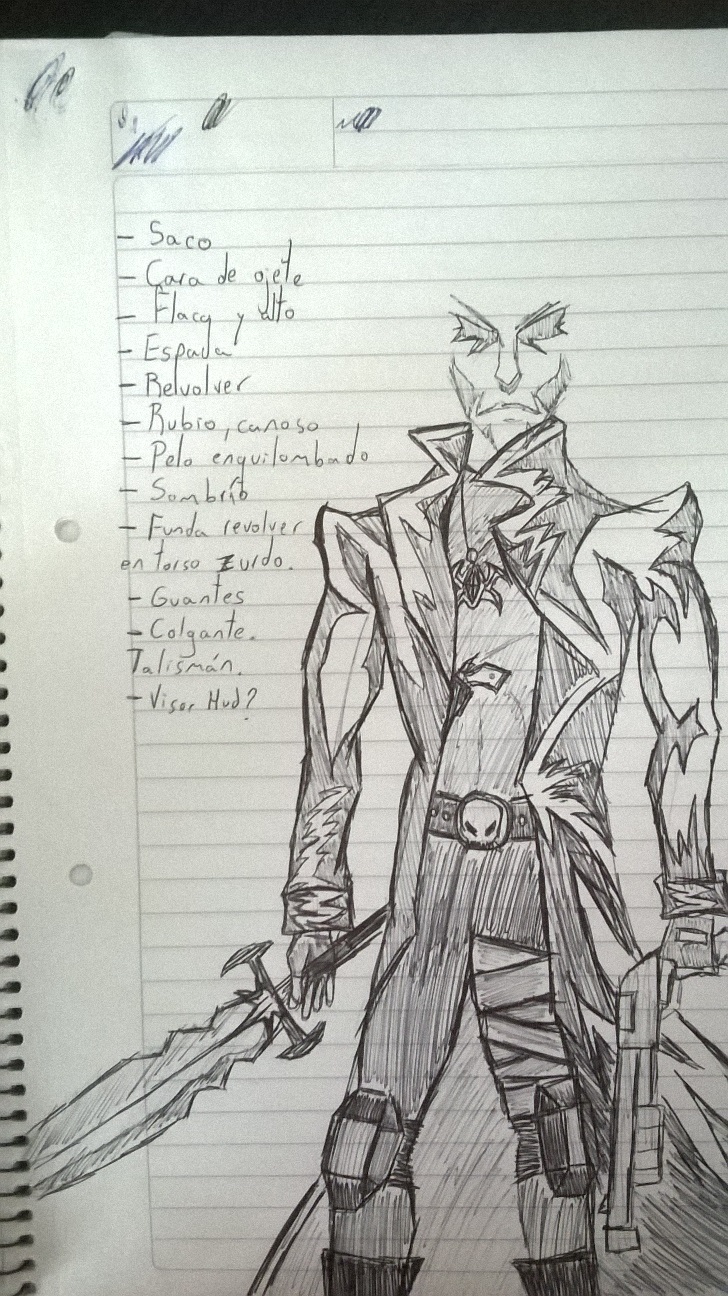 - Saco
- Cara de ojete
- Flaco y alto
- Espada
- Relvolver
- Rubio, canoso
- Pelo enquilombado
- Sombrío
- Funda revolver
en torso zurdo.
- Guantes
- Colgante.
Talismán.
- Visor Hud?